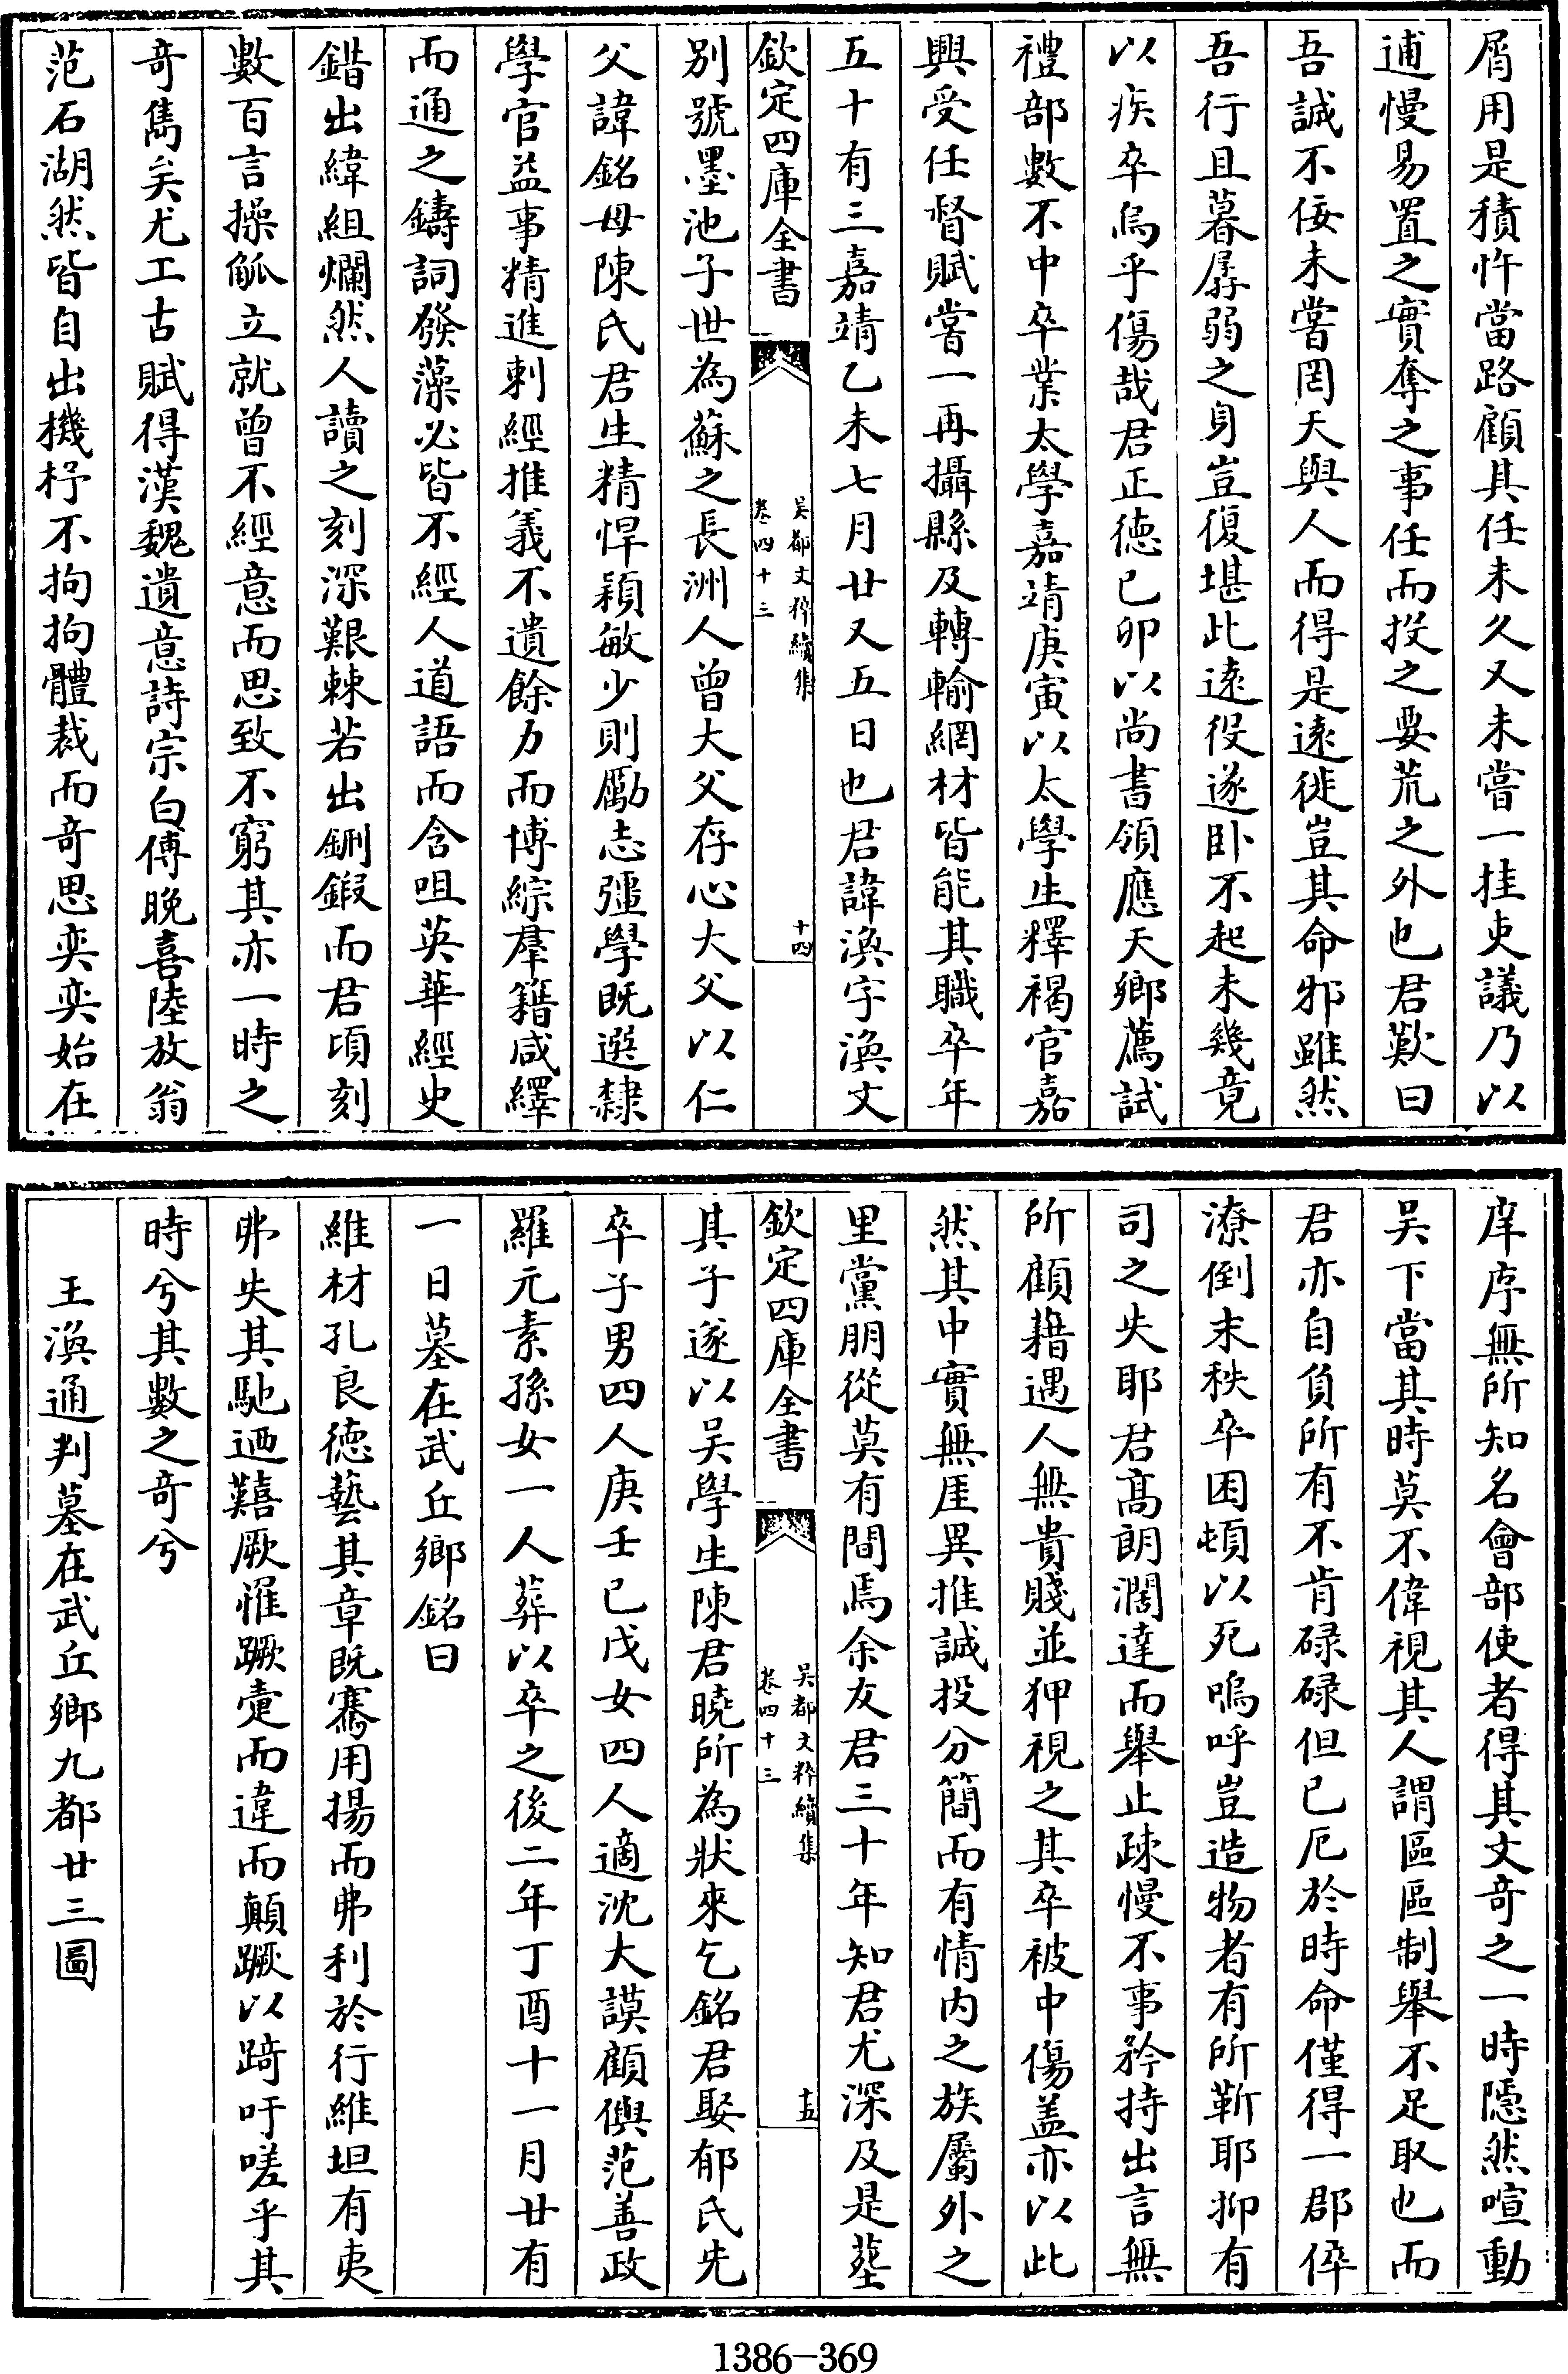 屑用是積忤當路顧其任未久又未嘗一挂吏議乃以
逋慢易置之實奪之事任而投之要荒之外也君歎曰
吾誠不佞未嘗罔天與人而得是遠徙豈其命邪雖然
吾行且暮孱弱之身豈復堪此遠役遂卧不起未幾竟
以疾卒烏乎傷哉君正徳已卯以尚書領應天鄉薦試
禮部數不中卒業太學嘉靖庚寅以太學生釋褐官嘉
興受任督賦嘗一再攝縣及轉輸網材皆能其職卒年
五十有三嘉靖乙未七月廿又五日也君諱渙字渙文
欽定四庫全書
吳都文粹續集
卷四十三
十四
别號墨池子世為蘇之長洲人曾大父存心大父以仁
父諱銘母陳氏君生精悍穎敏少則勵志彊學既選隸
學官益事精進刺經推義不遺餘力而博綜羣籍咸繹
而通之鑄詞發藻必皆不經人道語而含咀英華經史
錯出緯組爛然人讀之刻深艱棘若出鉶鍜而君頃刻
數百言操觚立就曾不經意而思致不窮其亦一時之
奇雋矣尤工古賦得漢魏遺意詩宗白傅晚喜陸放翁
范石湖然皆自出機杼不拘拘體裁而奇思奕奕始在
庠序無所知名會部使者得其文奇之一時隱然喧動
吳下當其時莫不偉視其人謂區區制舉不足取也而
君亦自負所有不肯碌碌但已厄於時命僅得一郡倅
潦倒末秩卒困頓以死嗚呼豈造物者有所靳耶抑有
司之失耶君髙朗濶達而舉止疎慢不事矜持出言無
所顧藉遇人無貴賤並狎視之其卒被中傷盖亦以此
然其中實無厓異推誠投分簡而有情内之族屬外之
里黨朋從莫有間焉余友君三十年知君尤深及是葬
欽定四庫全書
吳都文粹續集
卷四十三
十五
其子遂以吳學生陳君曉所為狀來乞銘君娶郁氏先
卒子男四人庚壬已戊女四人適沈大謨顧僎范善政
羅元素孫女一人葬以卒之後二年丁酉十一月廿有
一日墓在武丘鄉銘曰
維材孔良徳藝其章既騫用揚而弗利於行維坦有夷
弗失其馳迺囏厥罹蹶疐而違而顛蹶以踦吁嗟乎其
時兮其數之奇兮
王渙通判墓在武丘鄉九都廿三圖
1386-369